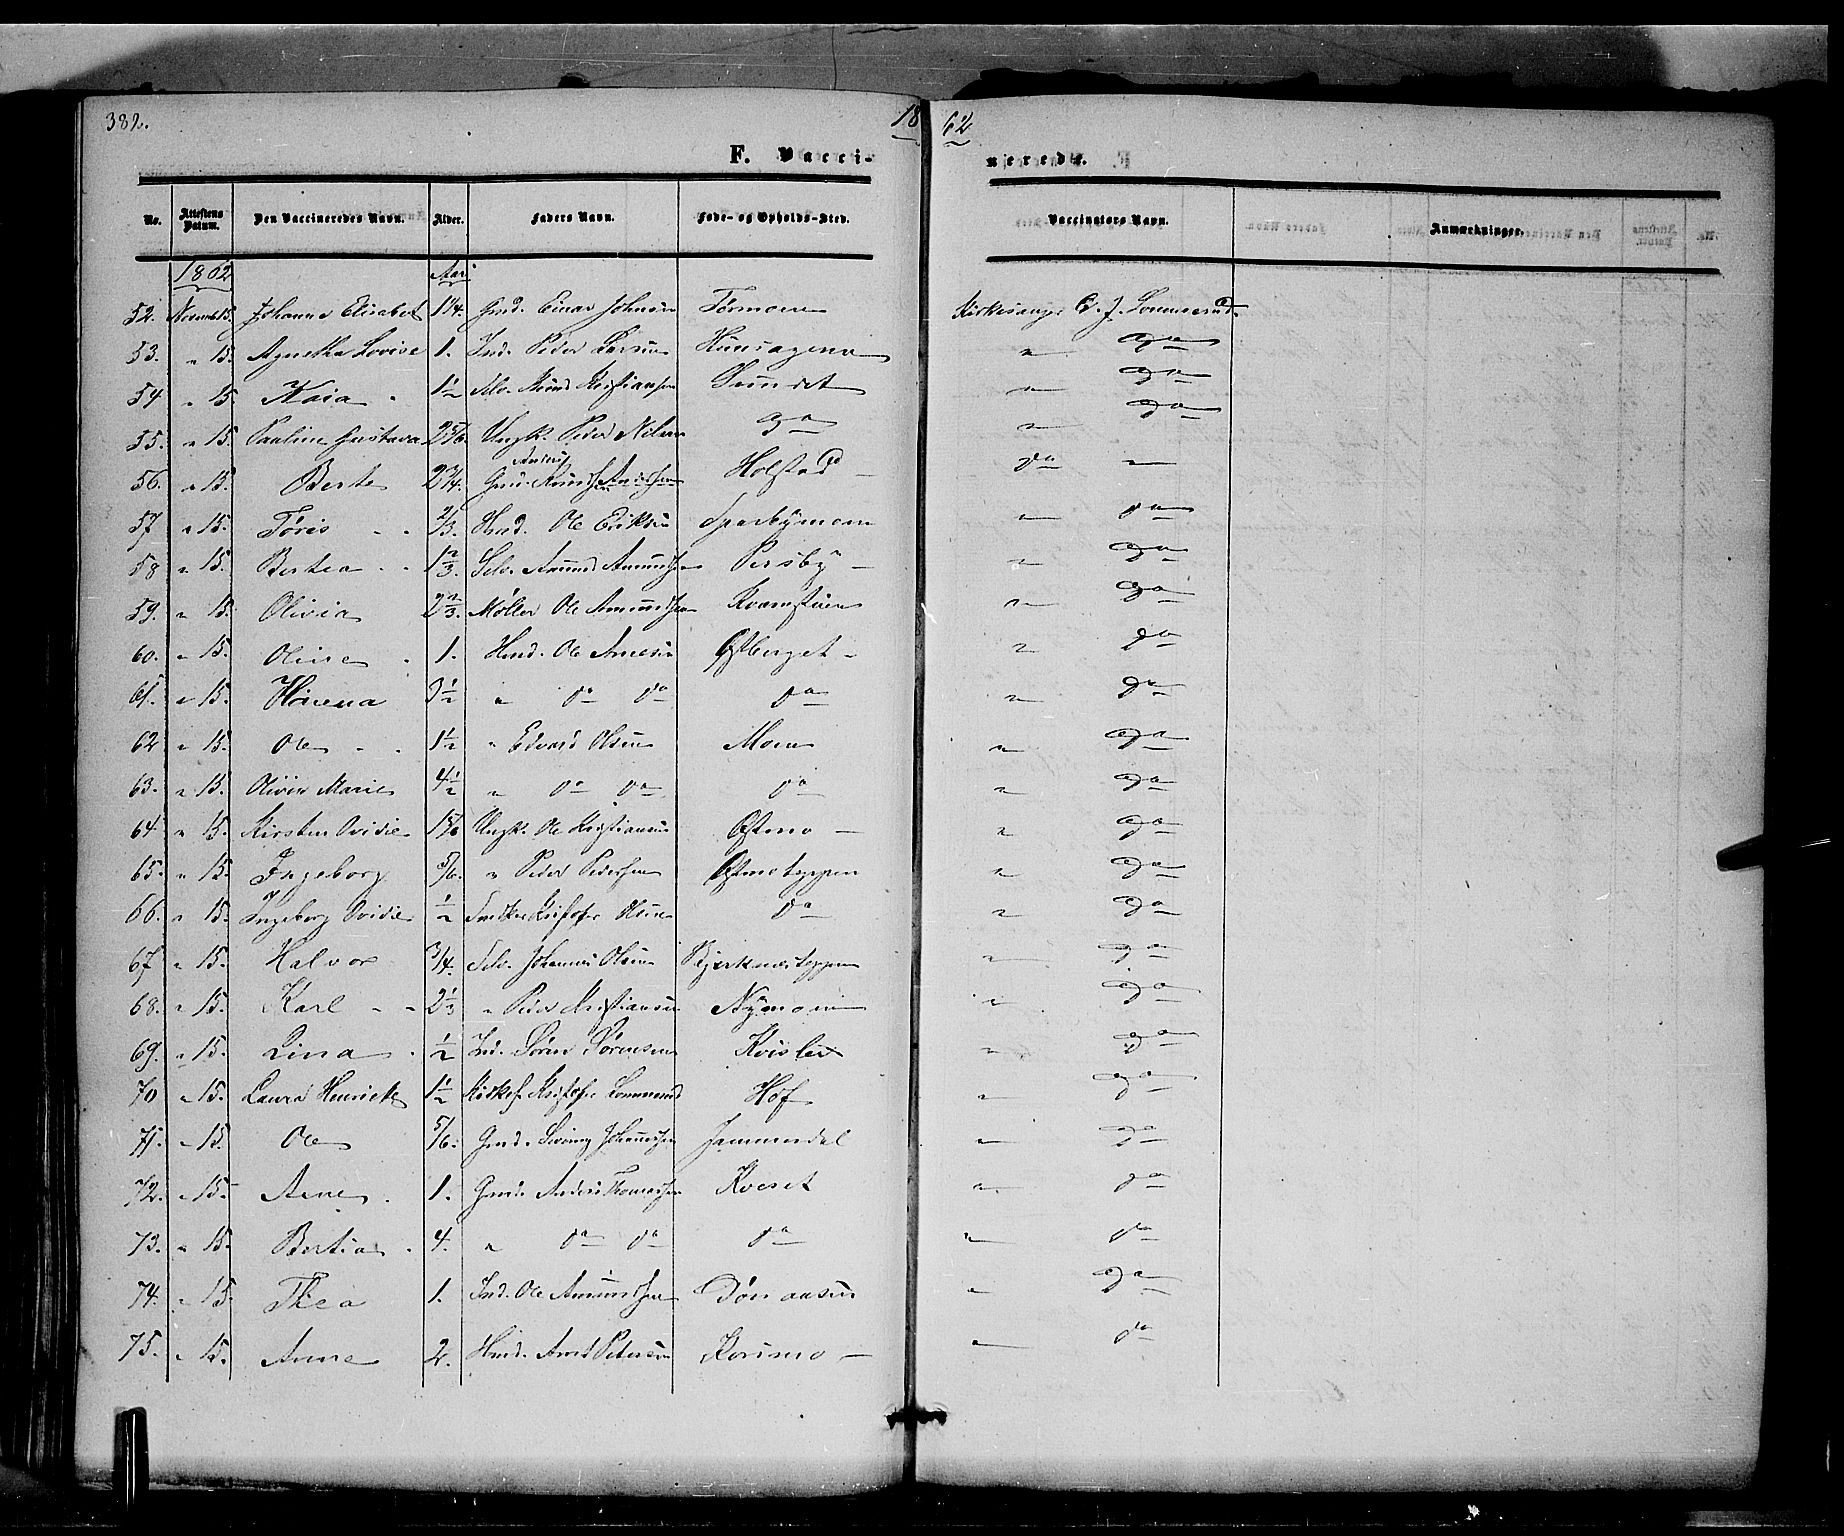 382.
18
62
F. Vacci-
nerede.
No.
Attestens Datum.
Den Vaccineredes Navn.
Alder.
Faders Navn.
Føde- og Opholds-Sted.
Vaccinators Navn.
Anmærkninger.
1862 Aar
52. Novemb 15. Johanne Elisabet 1 1/4. Gmd. Einar Johnsen Tørmoen Kirkesanger
53. " 15. Agnetha Lovise 1. Ind. Peder Larsen " do
54 " 15. Kaia 1 1/2 Selv. Kristiansen Sundet " do
55. " 15. Pauline Gustava 2 5/6. Ungk. Peder Nilsen do " do
56. " 15. Berte 2 3/4. Holstad do "
57 " 15. Tøris 2/3. Hmd. Ole Eriksen Sparbymoen " do
58 " 15. Bertea 1 2/3. Selv. Amund Amundsen Persby " do
59. " 15. Olivia 2 2/3. Møller Ole Amundsen " do
60. " 15. Oline 1. Hmd. Ole Arnesen Østberget " do
61. " 15. 3 1/2 " do do do " do
62 " 15. Ole 1 1/2 " Edvard Olsen Moen " do
63. " 15. Oliver Marie 4 1/2 " do do do " do
64. " 15. Kirsten Ovidie 1 5/6 Ungk. Ole Kristiansen Østmo " do
65. " 15. Ingeborg 5/6. " Peder Pedersen Østmoeggen " do
66. " 15. Ingeborg Ovidie 1/2 Kristofer Olsen do " do
67 " 15. Halvor 3/4. Selv. Johannes Olsen " do
68. " 15. Karl 2 1/3 " Peder Kristiansen Nymoen " do
69. " 15. Lina 1/2 Ind. Søren Sørensen Kvisler " do
70 " 15. Laura Henriette 1 1/2 Kirkes. Kristofer Hof " do
71. " 15. Ole 5/6. Gmd. Johannesen Jammerdal " do
72. " 15. Arne 1. Gmd. Anders Thomassen Kveset " do
73. " 15. Bertia 4. " do do do " do
74. " 15. Thea 1. Ind. Ole Amundsen " do
75. " 15. Anne 2. Hmd. Petersen Korsmo " do